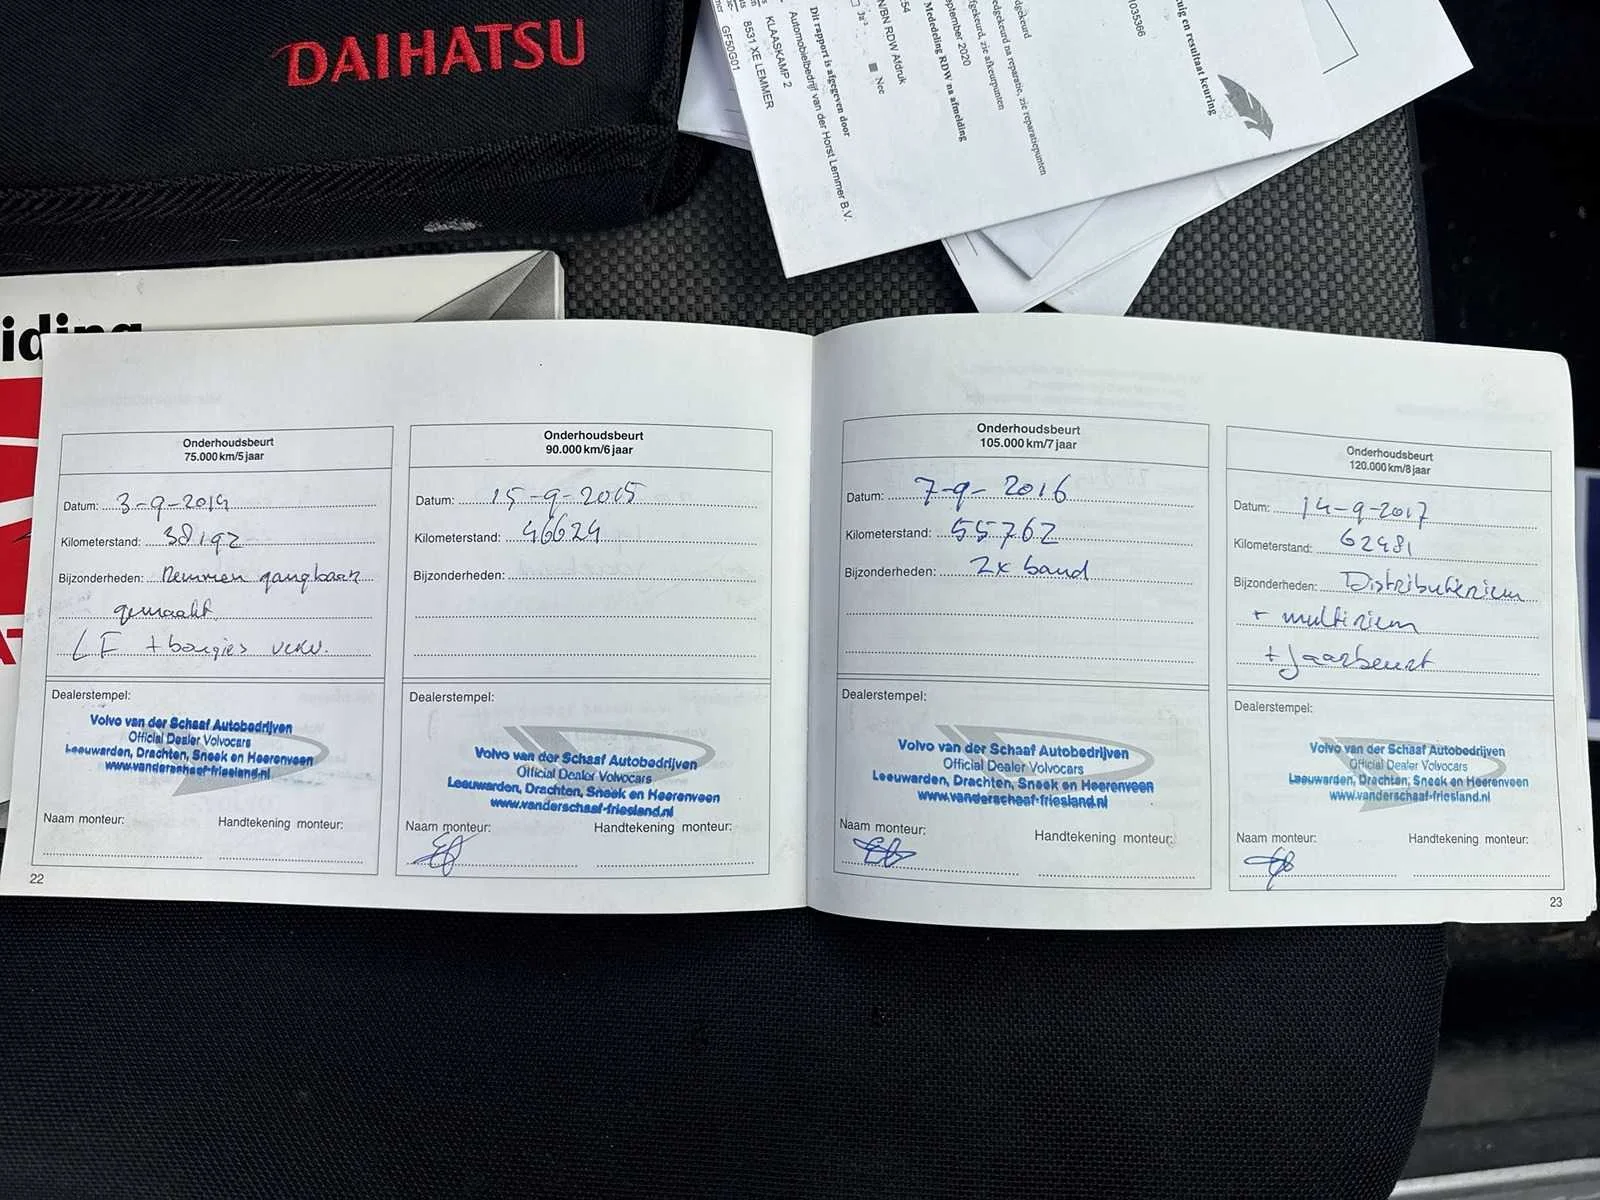 DAIHATSU
uig en resultaat keuring
1035366
dgekeurd
edgekeurd na reparatie, zie reparatiepunten
fgekeurd, zie afkeurpunten
eptember 2020
Mededeling RDW na afmelding
:54
N/BN RDW Afdruk
Ja
Nee
Dit rapport is afgegeven door
Automobielbedrijf van der Horst Lemmer B.V.
KLAASKAMP 2
8531 XE LEMMER
GF50G01
iding
Onderhoudsbeurt
75.000 km/5 jaar
Datum: 3-9-2014
Kilometerstand: 38192
Bijzonderheden: Remmen gangbaar
gemaakt
LF + bougies verv.
Dealerstempel:
Volvo van der Schaaf Autobedrijven
Official Dealer Volvocars
Leeuwarden, Drachten, Sneek en Heerenveen
www.vanderschaaf-friesland.nl
Naam monteur: Handtekening monteur:
22
Onderhoudsbeurt
90.000 km/6 jaar
Datum: 15-9-2015
Kilometerstand: 46624
Bijzonderheden:
Dealerstempel:
Volvo van der Schaaf Autobedrijven
Official Dealer Volvocars
Leeuwarden, Drachten, Sneek en Heerenveen
www.vanderschaaf-friesland.nl
Naam monteur: Handtekening monteur:
Onderhoudsbeurt
105.000 km/7 jaar
Datum: 7-9-2016
Kilometerstand: 55762
Bijzonderheden: 2x band
Dealerstempel:
Volvo van der Schaaf Autobedrijven
Official Dealer Volvocars
Leeuwarden, Drachten, Sneek en Heerenveen
www.vanderschaaf-friesland.nl
Naam monteur: Handtekening monteur:
Onderhoudsbeurt
120.000 km/8 jaar
Datum: 14-9-2017
Kilometerstand: 62481
Bijzonderheden: Distributieriem
+ multiriem
+ Jaarbeurt
Dealerstempel:
Volvo van der Schaaf Autobedrijven
Official Dealer Volvocars
Leeuwarden, Drachten, Sneek en Heerenveen
www.vanderschaaf-friesland.nl
Naam monteur: Handtekening monteur:
23